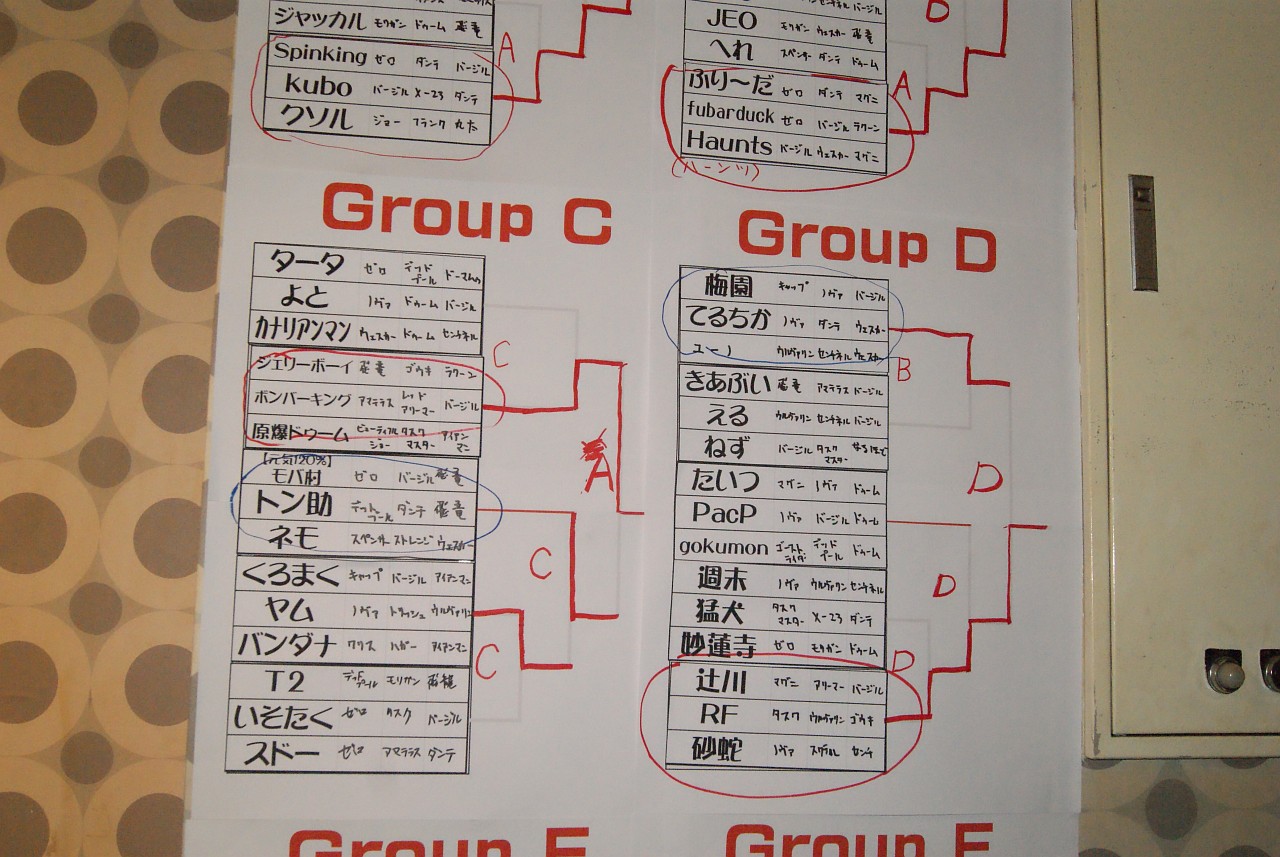 ジャッカル モリガン ドゥーム 飛竜
Spinking ゼロ ダンテ バージル
kubo バージル X-23 ダンテ
クソル ジョー フランク
A
JEO モリガン ウェスカー 飛竜
へれ スペンサー ダンテ ドゥーム
ふり〜だ ゼロ ダンテ マグニ
fubarduck ゼロ バージル ラクーン
Haunts バージル ウェスカー マグニ
(ハーンツ)
D
A
Group C
タータ ゼロ デッドプール
よと ノヴァ ドゥーム バージル
カナリアンマン ウェスカー ドゥーム センチネル
シェリーボーイ 飛竜 ゴウキ ラクーン
ボンバーキング アマテラス レッドアリーマー バージル
原爆ドゥーム ビューティフルジョー タスクマスター アイアンマン
【元気120%】
モバ村 ゼロ バージル 飛竜
トン助 デッドプール ダンテ 飛竜
ネモ スペンサー ストレンジ ウェスカー
くろまく キャップ バージル アイアンマン
ヤム ノヴァ トリッシュ ウルヴァリン
バンダナ クリス ハガー アイアンマン
T2 デッドプール モリガン 飛竜
いそたく ゼロ タスク バージル
スドー ゼロ アマテラス ダンテ
C
A
C
C
Group D
梅園 キャップ ノヴァ バージル
てるちか ノヴァ ダンテ ウェスカー
ユーノ ウルヴァリン センチネル ウェスカー
きあぶい 飛竜 アマテラス バージル
える ウルヴァリン センチネル バージル
ねず バージル タスクマスター
たいつ マグニ ノヴァ ドゥーム
PacP ノヴァ バージル ドゥーム
gokumon ゴーストライダー デッドプール ドゥーム
週末 ノヴァ ウルヴァリン センチネル
猛犬 タスクマスター X-23 ダンテ
妙蓮寺 ゼロ モリガン ドゥーム
辻川 マグニ アリーマー バージル
RF タスク ウルヴァリン ゴウキ
砂蛇 ノヴァ スクラル センチ
B
D
D
D
Group E
Group F